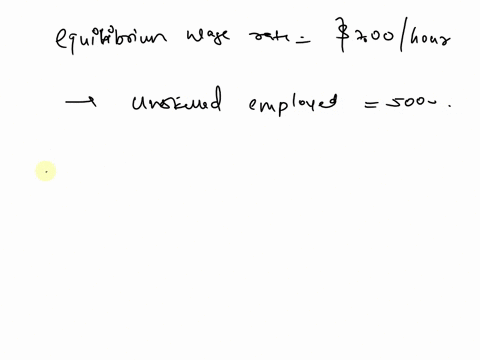 equilibrium wage rate = $ 700/hour
→ unskilled employed = 5000.